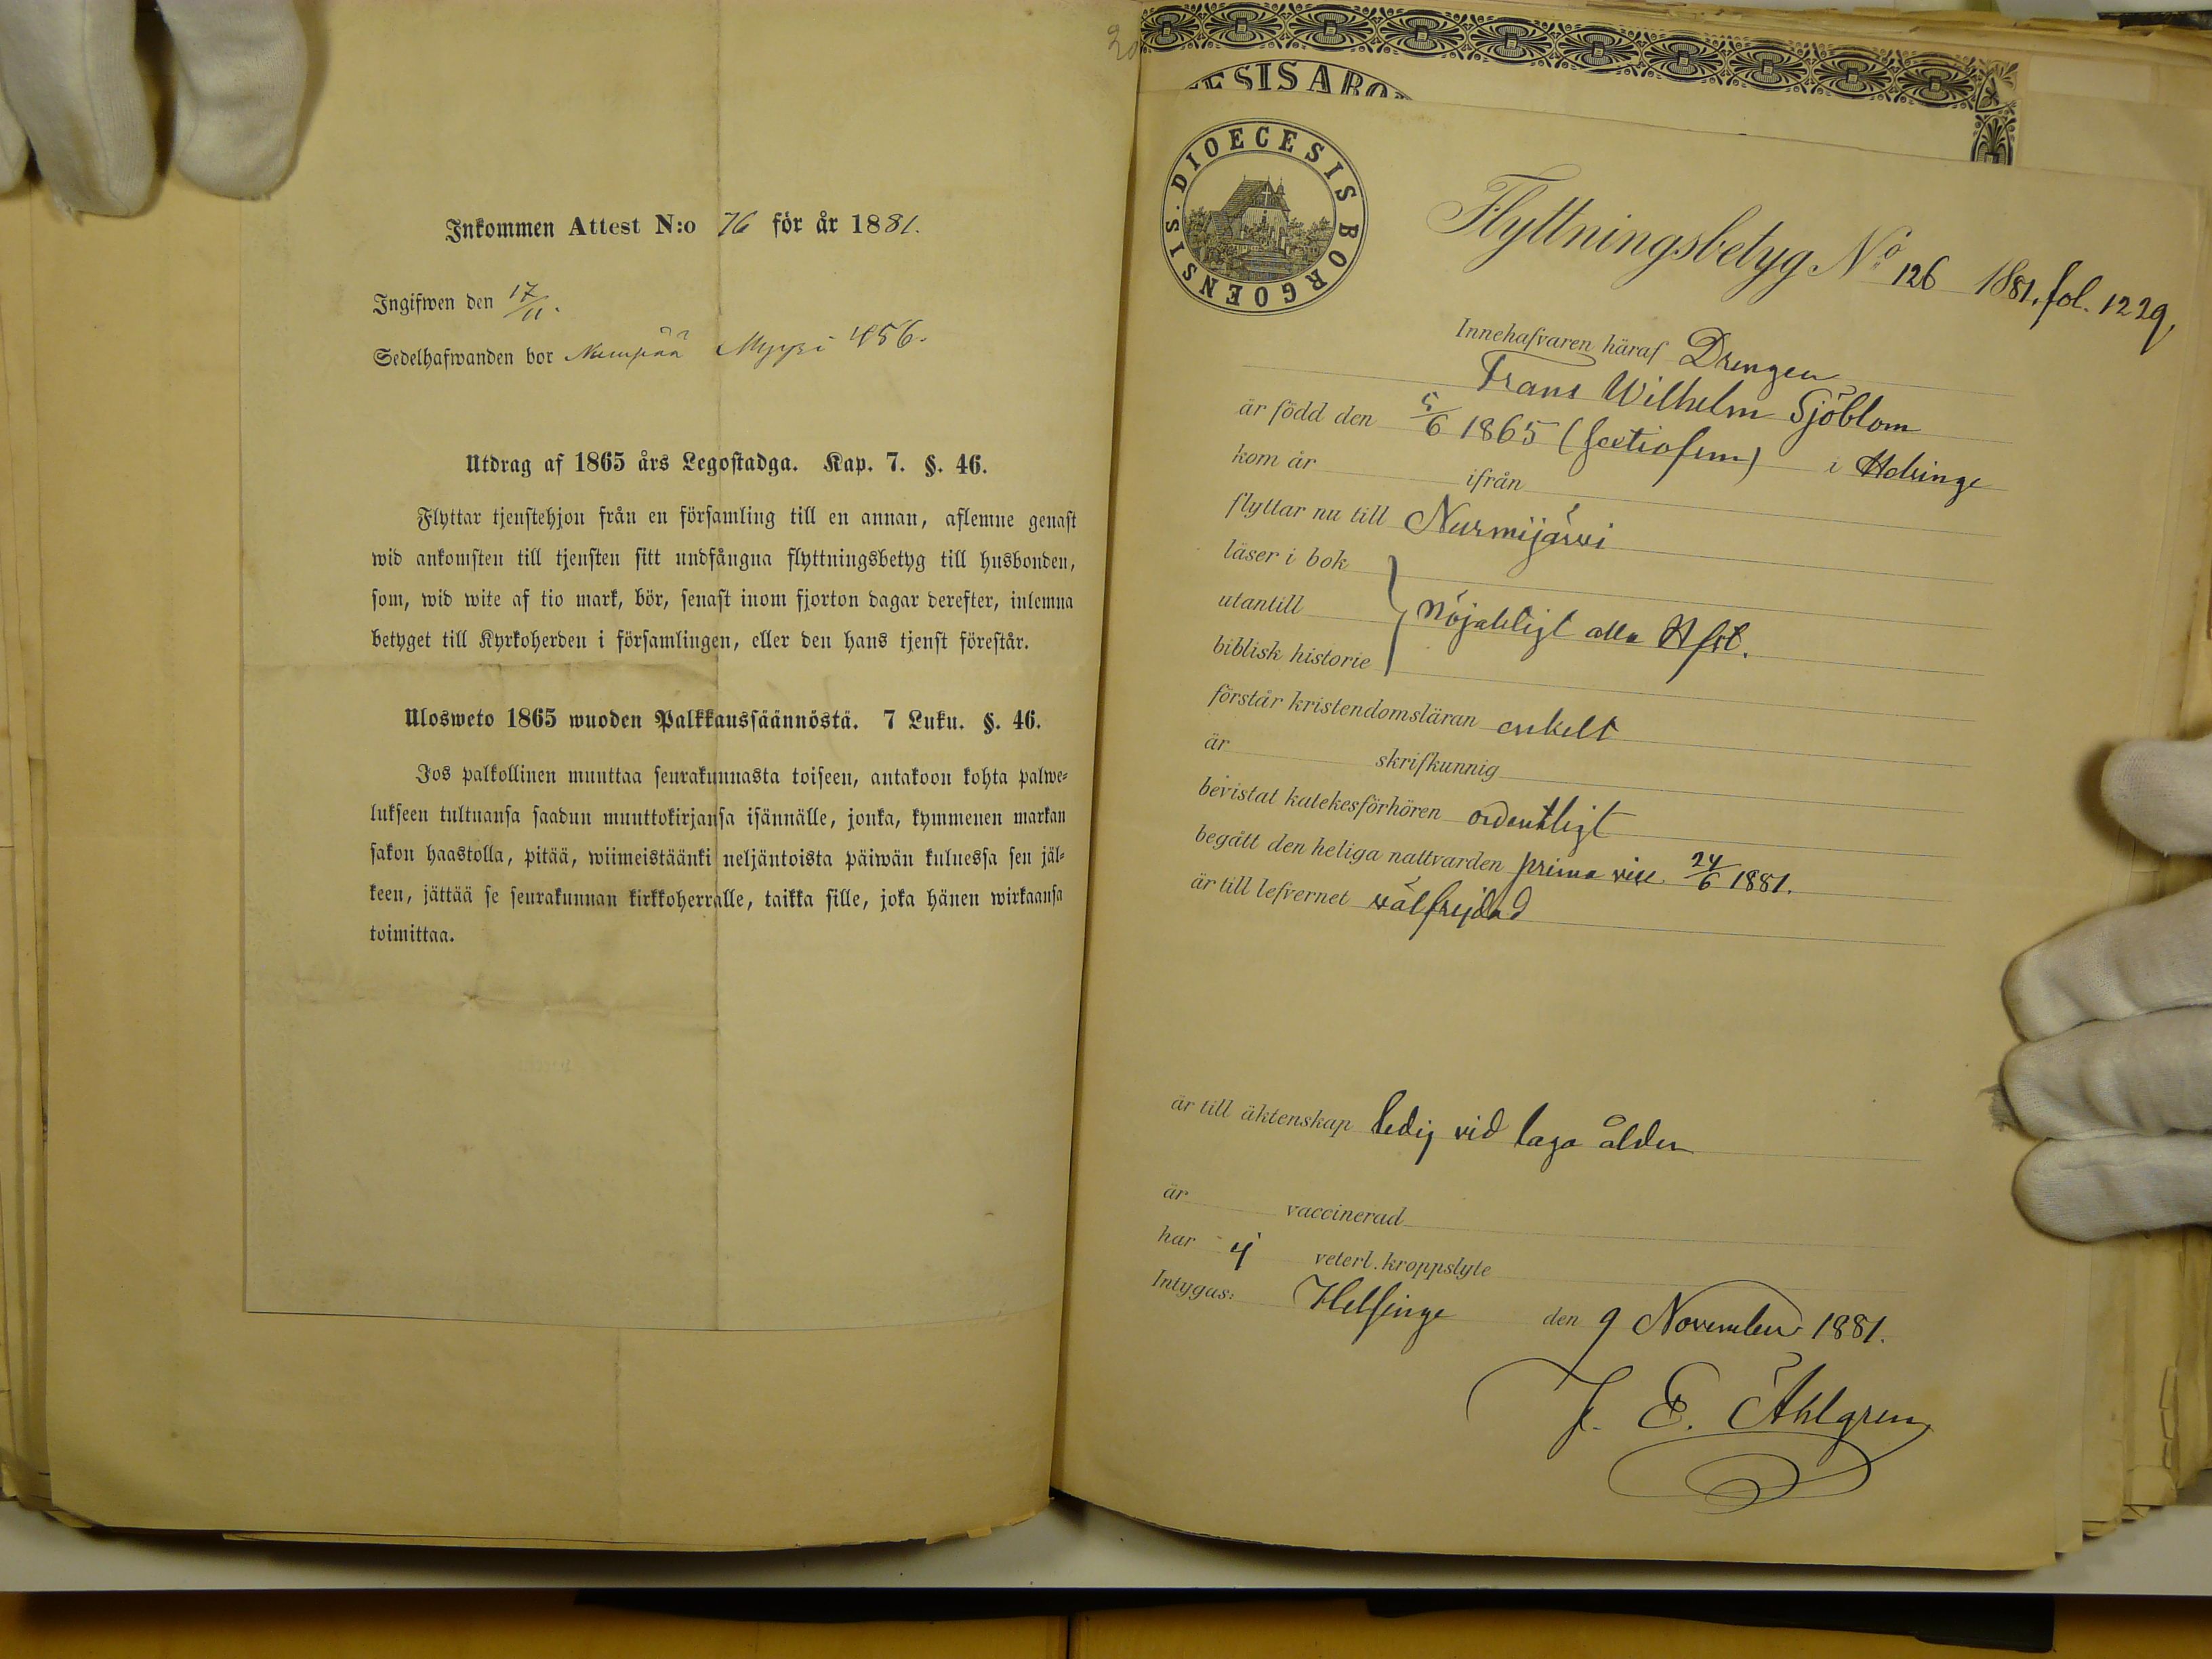 Inkommen Attest N:o 76 för år 1881.
Ingifwen den 17/11.
Sedelhafwanden bor Numpää Myyri 456.
Utdrag af 1865 års Legostadga. Kap. 7. §. 46.
Flyttar tjenstehjon från en församling till en annan, aflemne genast
wid ankomsten till tjensten sitt undfångna flyttningsbetyg till husbonden,
som, wid wite af tio mark, bör, senast inom fjorton dagar derefter, inlemna
betyget till Kyrkoherden i församlingen, eller den hans tjenst förestår.
Ulosweto 1865 wuoden Palkkaussäännöstä. 7 Luku. §. 46.
Jos palkollinen muuttaa seurakunnasta toiseen, antakoon kohta palwe-
lukseen tultuansa saadun muuttokirjansa isännälle, jonka, kymmenen markan
sakon haastolla, pitää, wiimeistäänki neljäntoista päiwän kuluessa sen jäl-
keen, jättää se seurakunnan kirkkoherralle, taikka sille, joka hänen wirkaansa
toimittaa.
20
ESIS ABO
DIOECESIS BORGOENSIS.
Flyttningsbetyg No 126 1881. fol. 1229,
Innehafvaren häraf Drengen
Frans Wilhelm Sjöblom
är född den 5/6 1865 (sextiofem) i Helsinge
kom år ifrån
flyttar nu till Nurmijärvi
läser i bok
utantill nöjaktigt alla H st.
biblisk historie
förstår kristendomsläran enkelt
är skrifkunnig
bevistat katekesförhören ordentligt
begått den heliga nattvarden prima vice 24/6 1881.
är till lefvernet välfrejdad
är till äktenskap ledig vid laga ålder
är vaccinerad
har ej veterl. kroppslyte
Intygas: Helsinge den 9 November 1881.
J. E. Åhlgren